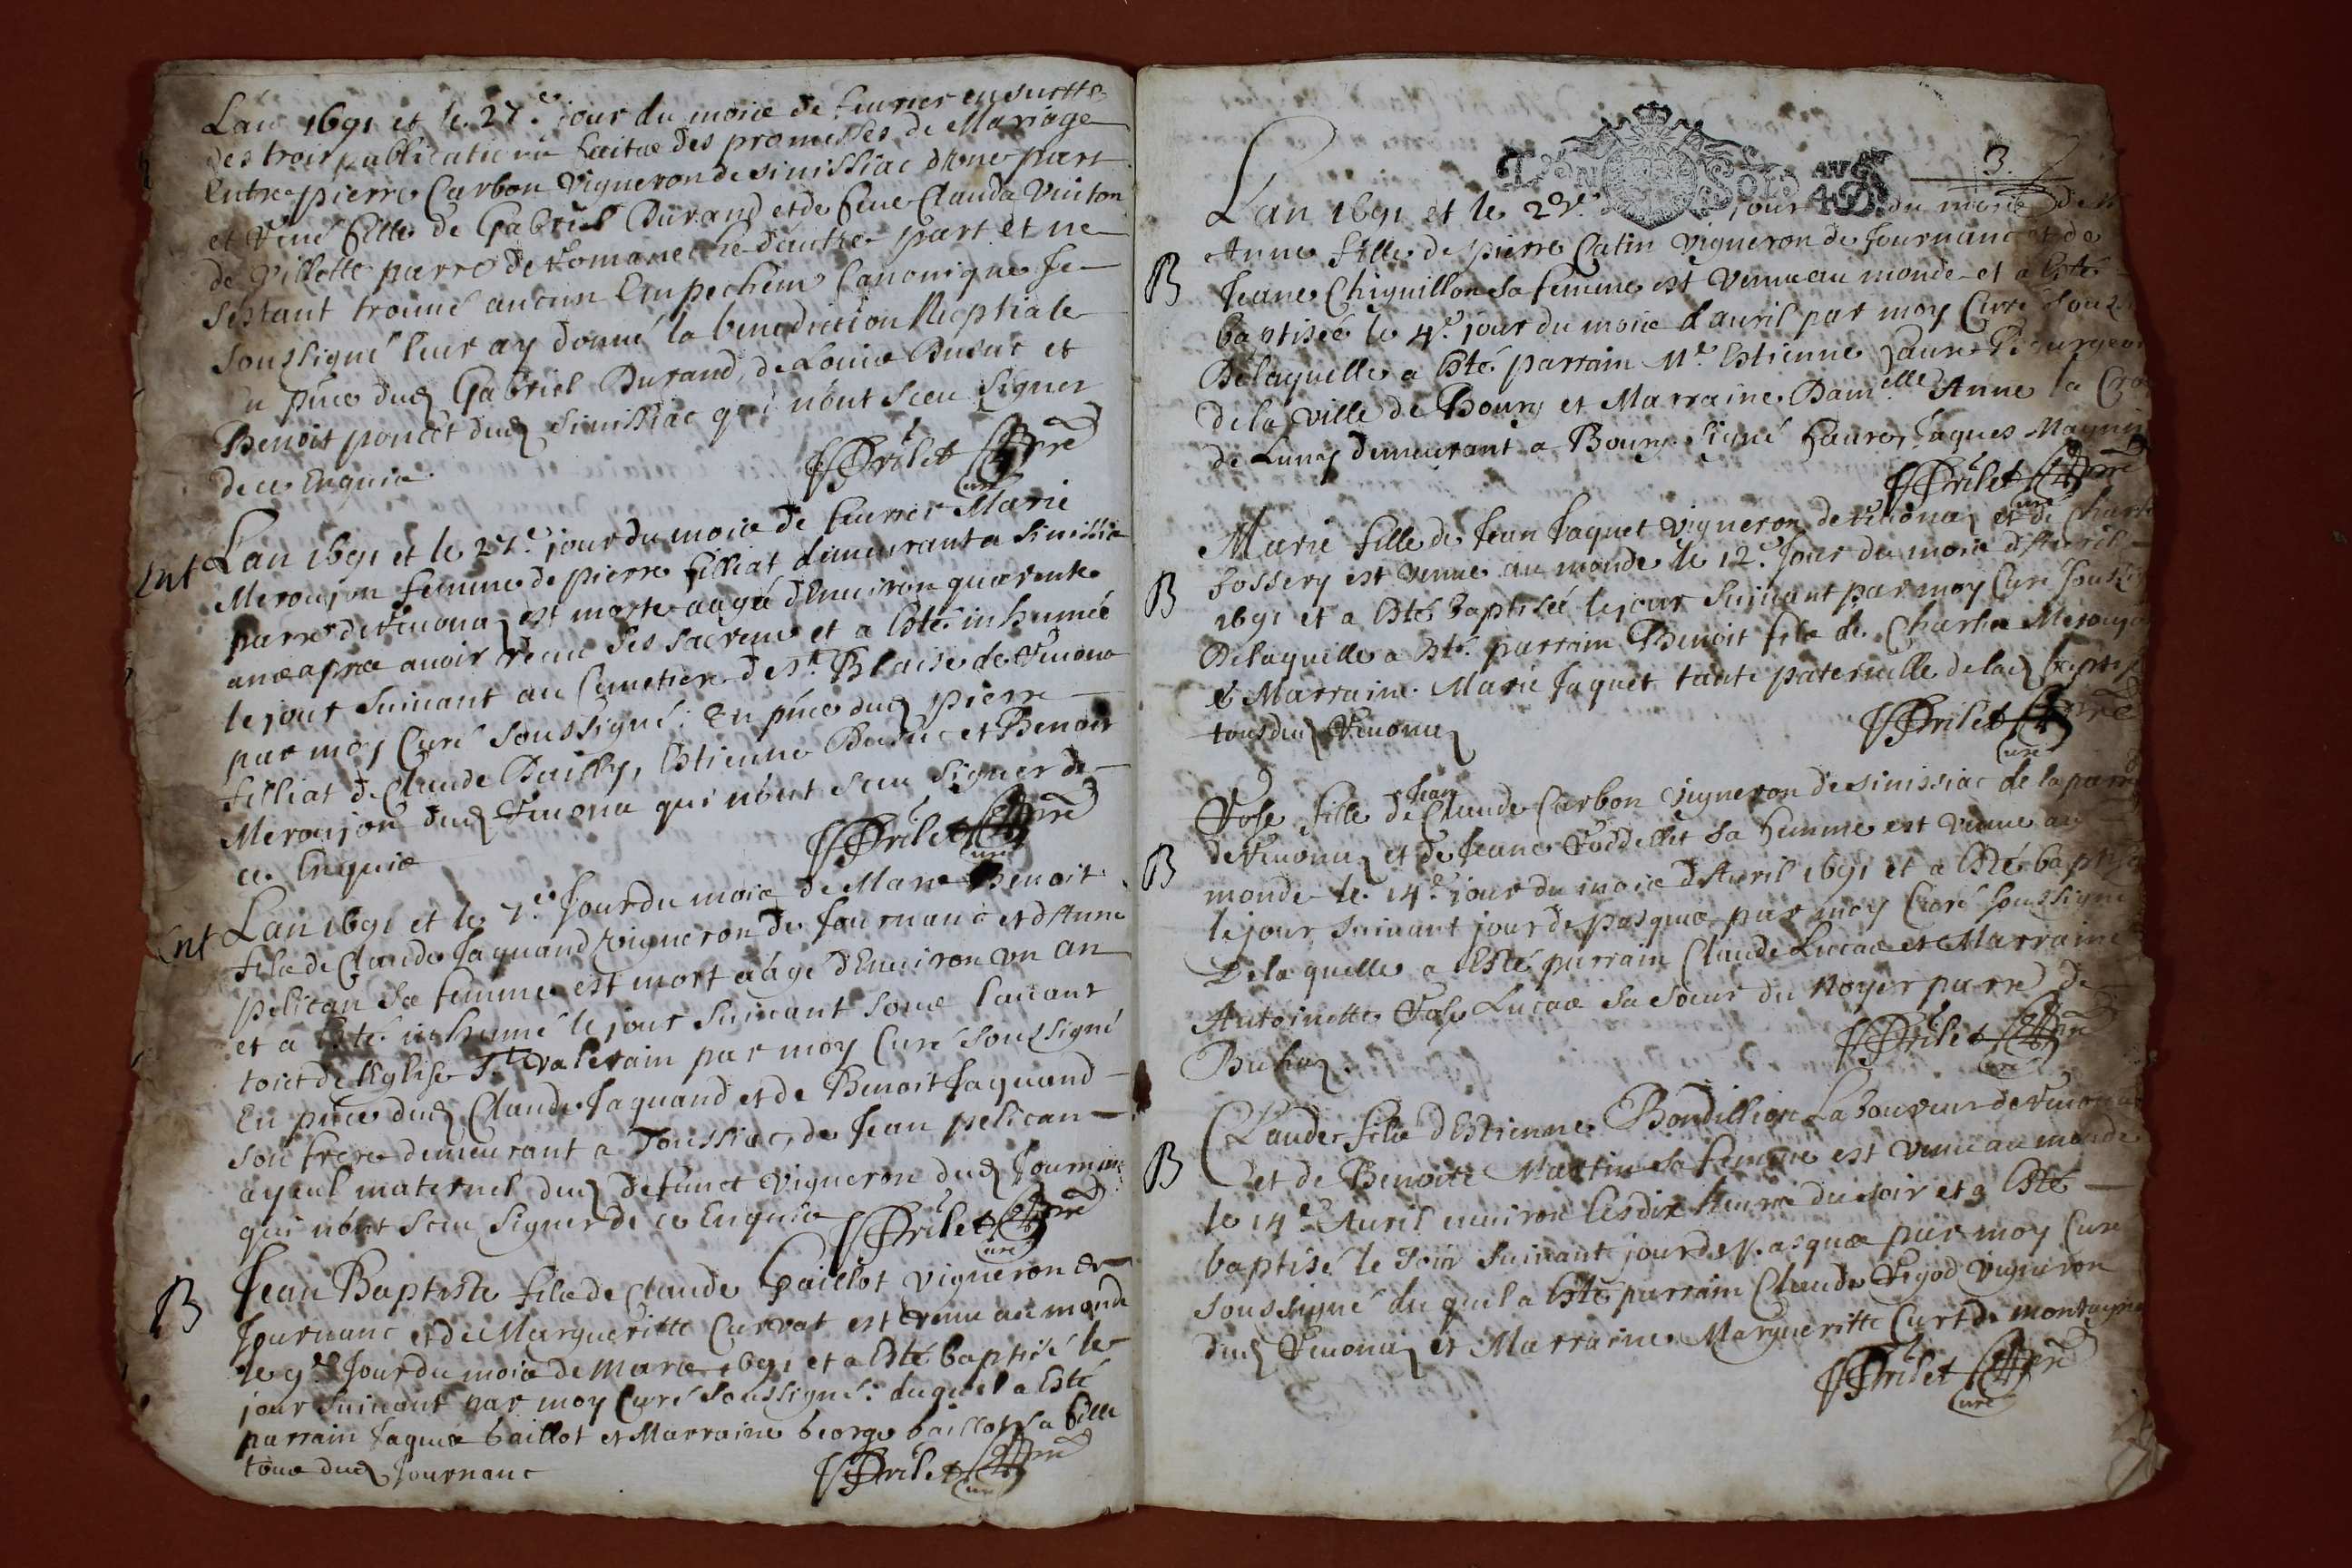 L'an 1691 et le 27.e jour du mois de feurier en suitte
des trois publications faites des promesses de Mariage
Entre pierre Carbon Vigneron de sinissiac d'vne part
et René fille de Gabriel Durand et de feue Clauda Vuiton
de Villette parre de Romaneche d'autre part et ne
s'estant trouué aucun Empechem Canonique Je
soussigné leur ay donné la benediction Nuptiale
En pnce dud Gabriel Durand, de Louis Dusuc et
Benoit poncet dud sinissiac qui n'ont sceu signer
de ce Enquis.
J Brilet pre
Curé
Ent L'an 1691 et le 27.e jour du mois de feurier Marie
Meroujon femme de pierre filliat demeurant a Sinissia
parre de Reuona est morte aagée d'Enuiron quarente
ans apres auoir receu ses sacrems et a Esté inhumée
le jour suiuant au Cemetiere de St. Blaise de Reuona
par moy Curé soussigné: En pnce dud pierre
filliat de Claude Bailly, Estienne Dusuc et Benoit
Meroujon dud Reuona qui n'ont sceu signer de
ce Enquis
J Brilet pre
Curé
Ent L'an 1691 et le 7.e Jour du mois de Mars Benoit
fils de Claude Jaquand vigneron de Journanc et d'Anne
pelican sa femme est mort aâgé d'Enuiron vn an
et a Esté inhumé le jour suiuant sous l'auant
toict de l'Eglise St. valerain par moy Curé soussigné
En pnce dud Claude Jaquand et de Benoit Jaquand
son frere demeurant a Toussiac, de Jean pelican
ayeul maternel dud defunct vigneron dud Journanc
qui n'ont sceu signer de ce Enquis
J Brilet pre
Curé
B Jean Baptiste fils de Claude Gaillot vigneron de
Journanc et de Margueritte Curvat est venu au monde
le 9.e Jour du mois de Mars 1691 et a Esté baptisé le
jour suiuant par moy Curé soussigné: duquel a Esté
parrain Jaques Gaillot et Marraine George Gaillot sa fille
tous dud Journanc
J Brilet pre
Curé
3.
L'an 1691 et le 27.e jour du mois de
Anne fille de pierre Catin vigneron de Journanc et de
B Jeane Chiquillon sa femme est venue au monde et a Esté
baptisée le 4.e jour du mois d'auril par moy Curé
De laquelle a Esté parrain Mr. Estienne faure Bourgeoi
de la ville de Bourg et Marraine Damelle Anne la
de Luny demeurant a Bourg. Signé faure, Jaques Magnin
J Brilet pre
Curé
Marie fille de Jean Jaquet vigneron de Reuona et de
B fossery est venue au monde le 12.e Jour du mois d'Auril
1691 et a Esté baptisée le jour suiuant par moy Curé
De laquelle a Esté parrain Benoit fils de Charles Meroujo
& Marraine Marie Jaquet tante paternelle de lad
tous dud Reuona
J Brilet pre
Curé
Jean
Rose fille de Claude Carbon vigneron de sinissiac de la parre
de Reuona et de Jeane Roddellet sa femme est venue au
B monde le 14.e jour du mois d'Auril 1691 et a Esté baptisée
le jour suiuant jour de pasques par moy Curé soussigné
De laquelle a Esté parrain Claude Lucas et Marraine
Antoinette Rose Lucas sa soeur du Noyer parre de
Buhaz.
J Brilet pre
Curé
Claude fils d'Estienne Bondillion Laboureur de Reuona
B et de Benoite Martin sa femme est venu au monde
le 14.e Auril enuiron les dix heures du soir et a Esté
baptisé le jour suiuant jour de pasques par moy Curé
soussigné duquel a Esté parrain Claude Rigod vigneron
dud Reuona et Marraine Margueritte Curt de
J Brilet pre
Curé